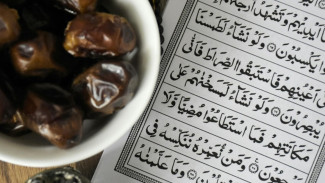 أَيْدِيهِمْ وَتَشْهَدُ أَرْجُلُهُمْ
يَكْسِبُونَ ۝ وَلَوْ نَشَآءُ لَطَمَسْنَا
أَعْيُنِهِمْ فَاسْتَبَقُوا الصِّرَاطَ فَأَنّٰى
يُبْصِرُونَ ۝ وَلَوْ نَشَآءُ لَمَسَخْنٰهُمْ عَلٰى
مَكَانَتِهِمْ فَمَا اسْتَطَاعُوا مُضِيًّا وَلَا
يَرْجِعُونَ ۝ وَمَنْ نُعَمِّرْهُ نُنَكِّسْهُ فِى
وَمَا عَلَّمْنٰهُ